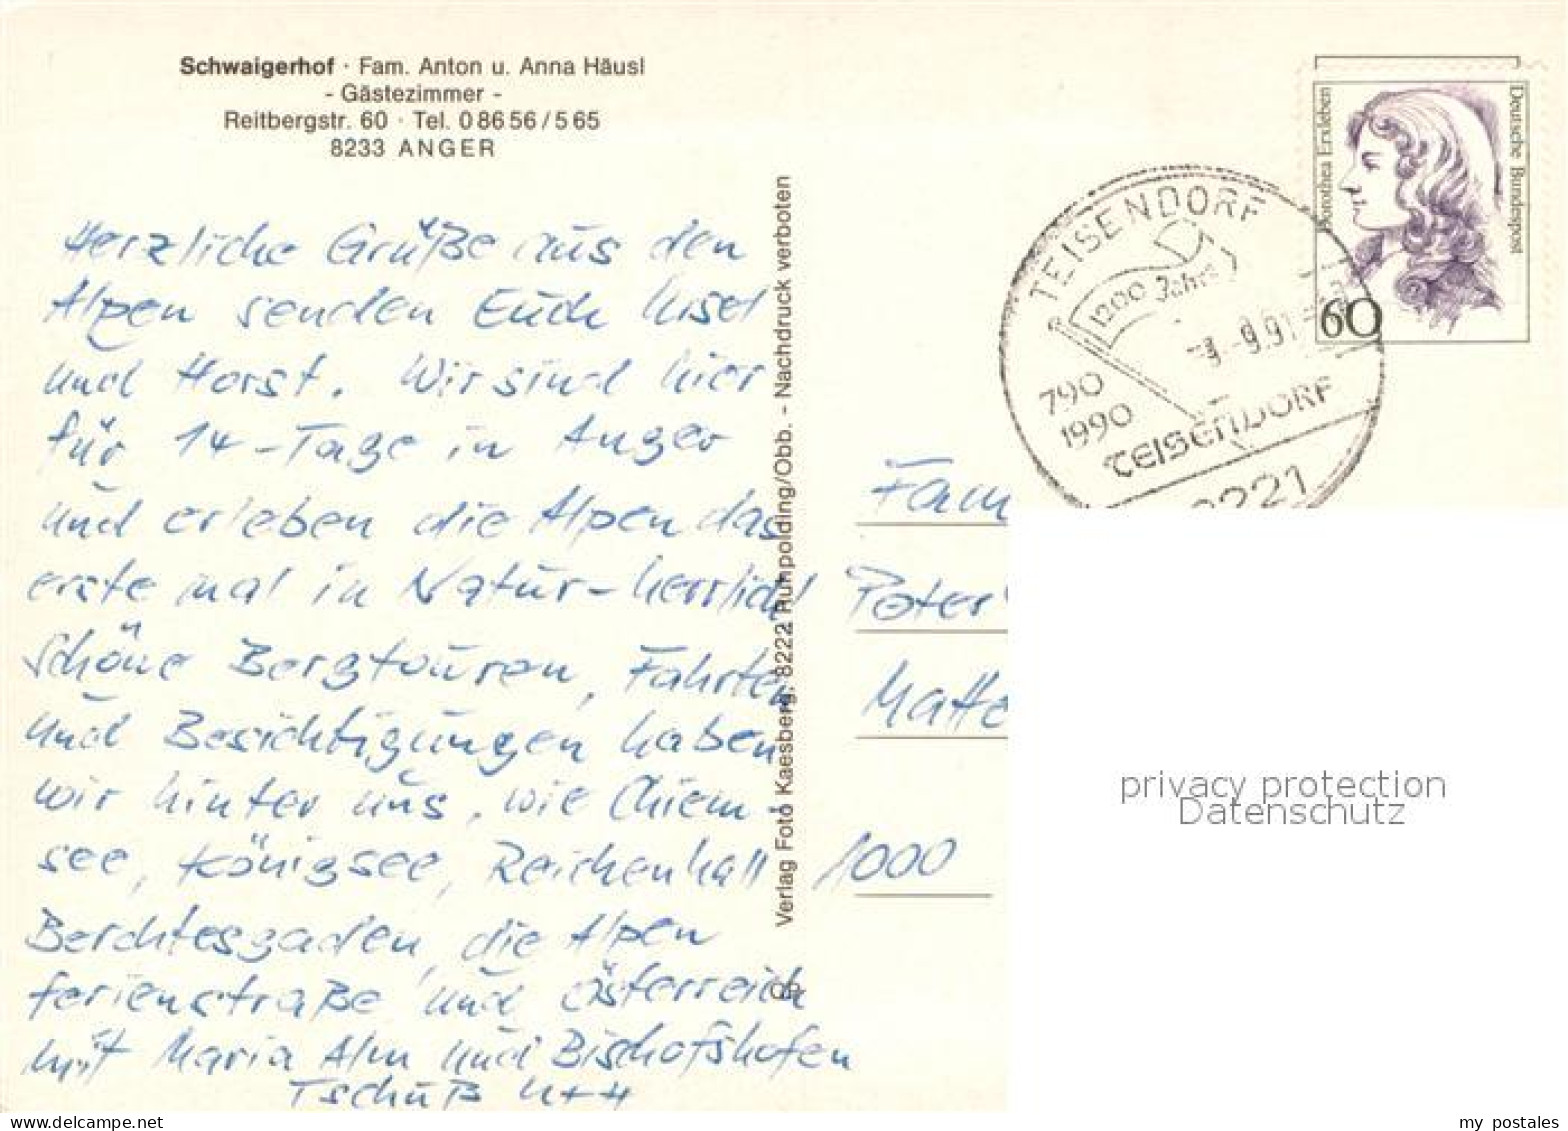 Schwaigerhof · Fam. Anton u. Anna Häusl
- Gästezimmer -
Reitbergstr. 60 · Tel. 0 86 56 / 5 65
8233 ANGER
Herzliche Grüße aus den
Alpen senden Euch Ursel
und Horst. Wir sind hier
für 14-Tage in Anger
und erleben die Alpen das
erste mal in Natur-herrlich
schöne Bergtouren, Fahrten
und Besichtigungen haben
wir hinter uns, wie Chiem-
see, Königsee, Reichenhall
Berchtesgaden, die Alpen
ferienstraße und Österreich
mit Maria Alm und Bischofshofen
Tschüß U+H
Verlag Foto Kaesberg, 8222 Ruhpolding/Obb. - Nachdruck verboten
Dorothea Erxleben
Deutsche Bundespost
60
TEISENDORF
1200 Jahre
-9.91
790
1990
TEISENDORF
8221
Fam
Peter
Matte
1000
privacy protection
Datenschutz
my postales